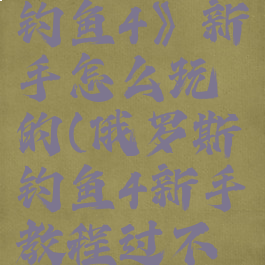 钓鱼4》新
手怎么玩
的(俄罗斯
钓鱼4新手
教程过不